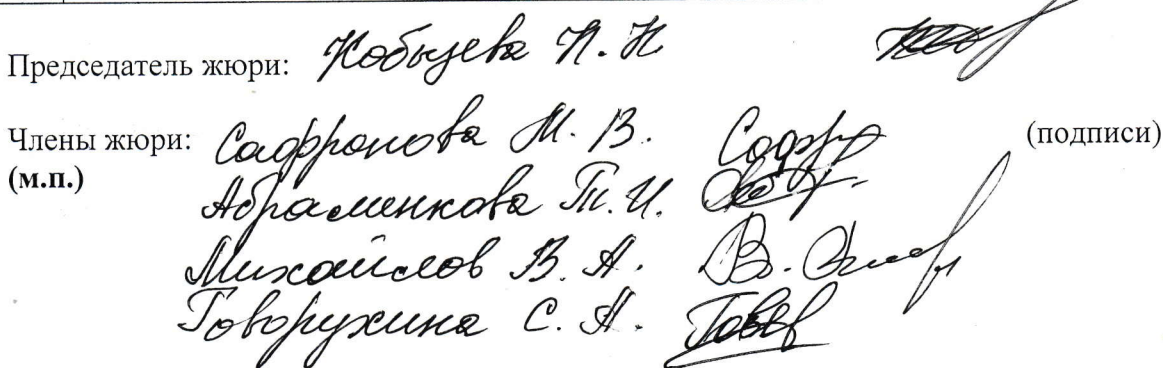 Председатель жюри: Кобызева Н. Н
Члены жюри: Сафронова М. В. (подписи)
(м.п.) Абраменкова Т. И.
Михайлов В. А.
Говорухина С. А.